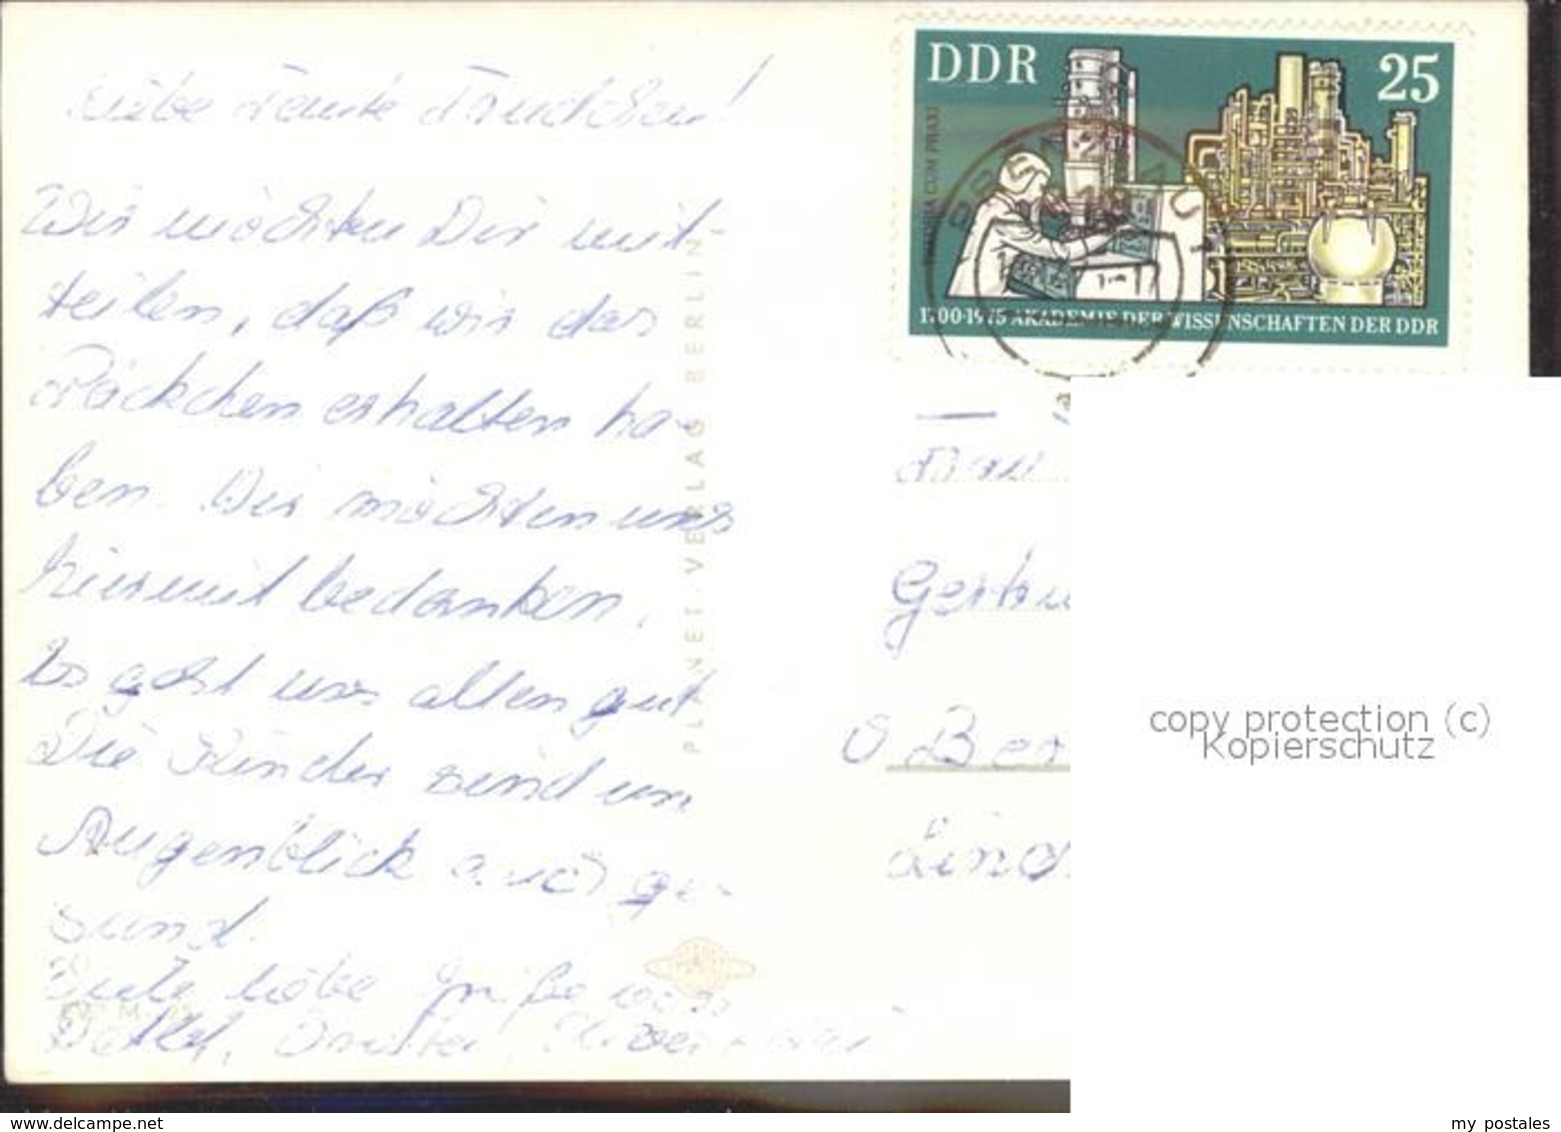 Liebe Tante Trudchen!
Wir möchten Dir mit-
teilen, daß wir das
Päckchen erhalten ha-
ben. Wir möchten uns
hiermit bedanken.
Es geht uns allen gut
Die Kinder sind im
Augenblick auch ge-
sund.
liebe Grüße von
DDR
25
THEORIA CUM PRAXI
1700-1975 AKADEMIE DER WISSENSCHAFTEN DER DDR
PLANET-VERLAG BERLIN
PLANET
EVP M
Frau
Gertru
Ber
Lind
copy protection (c)
Kopierschutz
www.delcampe.net
my_postales